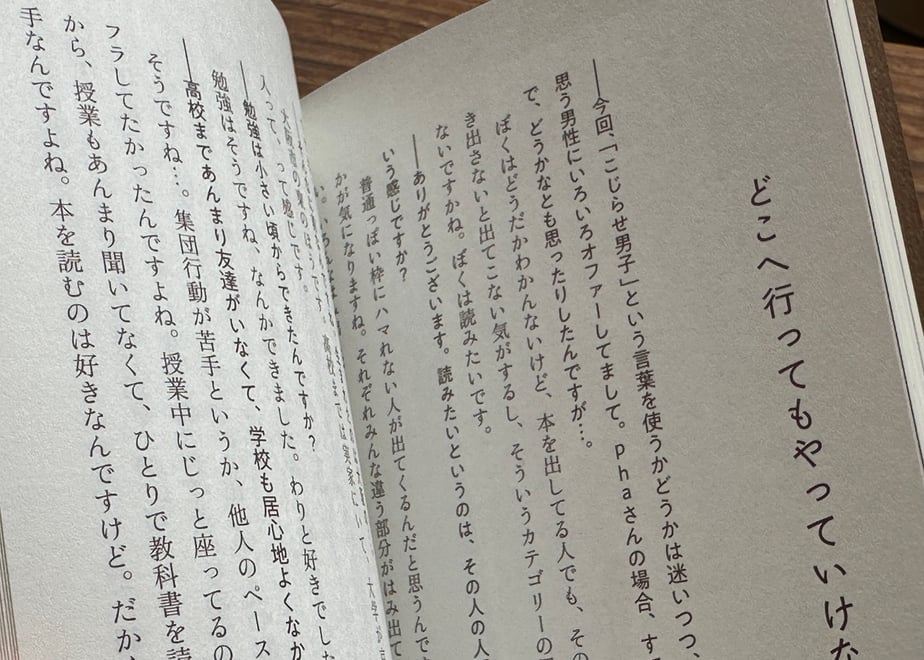 どこへ行ってもやっていけな
――今回、「こじらせ男子」という言葉を使うかどうかは迷いつつ、
思う男性にいろいろオファーしてまして。phaさんの場合、す
で、どうかなとも思ったりしたんですが…。
ぼくはどうだかわかんないけど、本を出してる人でも、その
き出さないと出てこない気がするし、そういうカテゴリーの
ないですかね。ぼくは読みたいです。
――ありがとうございます。読みたいというのは、その人の人
いう感じですか？
普通っぽい枠にハマれない人が出てくるんだと思うんで
かが気になりますね。それぞれみんな違う部分がはみ出て
人って、って感じです。
――勉強は小さい頃からできたんですか？
勉強はそうですね、なんかできました。わりと好きでした
――高校まであんまり友達がいなくて、学校も居心地よくなか
そうですね…。集団行動が苦手というか、他人のペース
フラしてたかったんですよね。授業中にじっと座ってるの
から、授業もあんまり聞いてなくて、ひとりで教科書を読
手なんですよね。本を読むのは好きなんですけど。だか